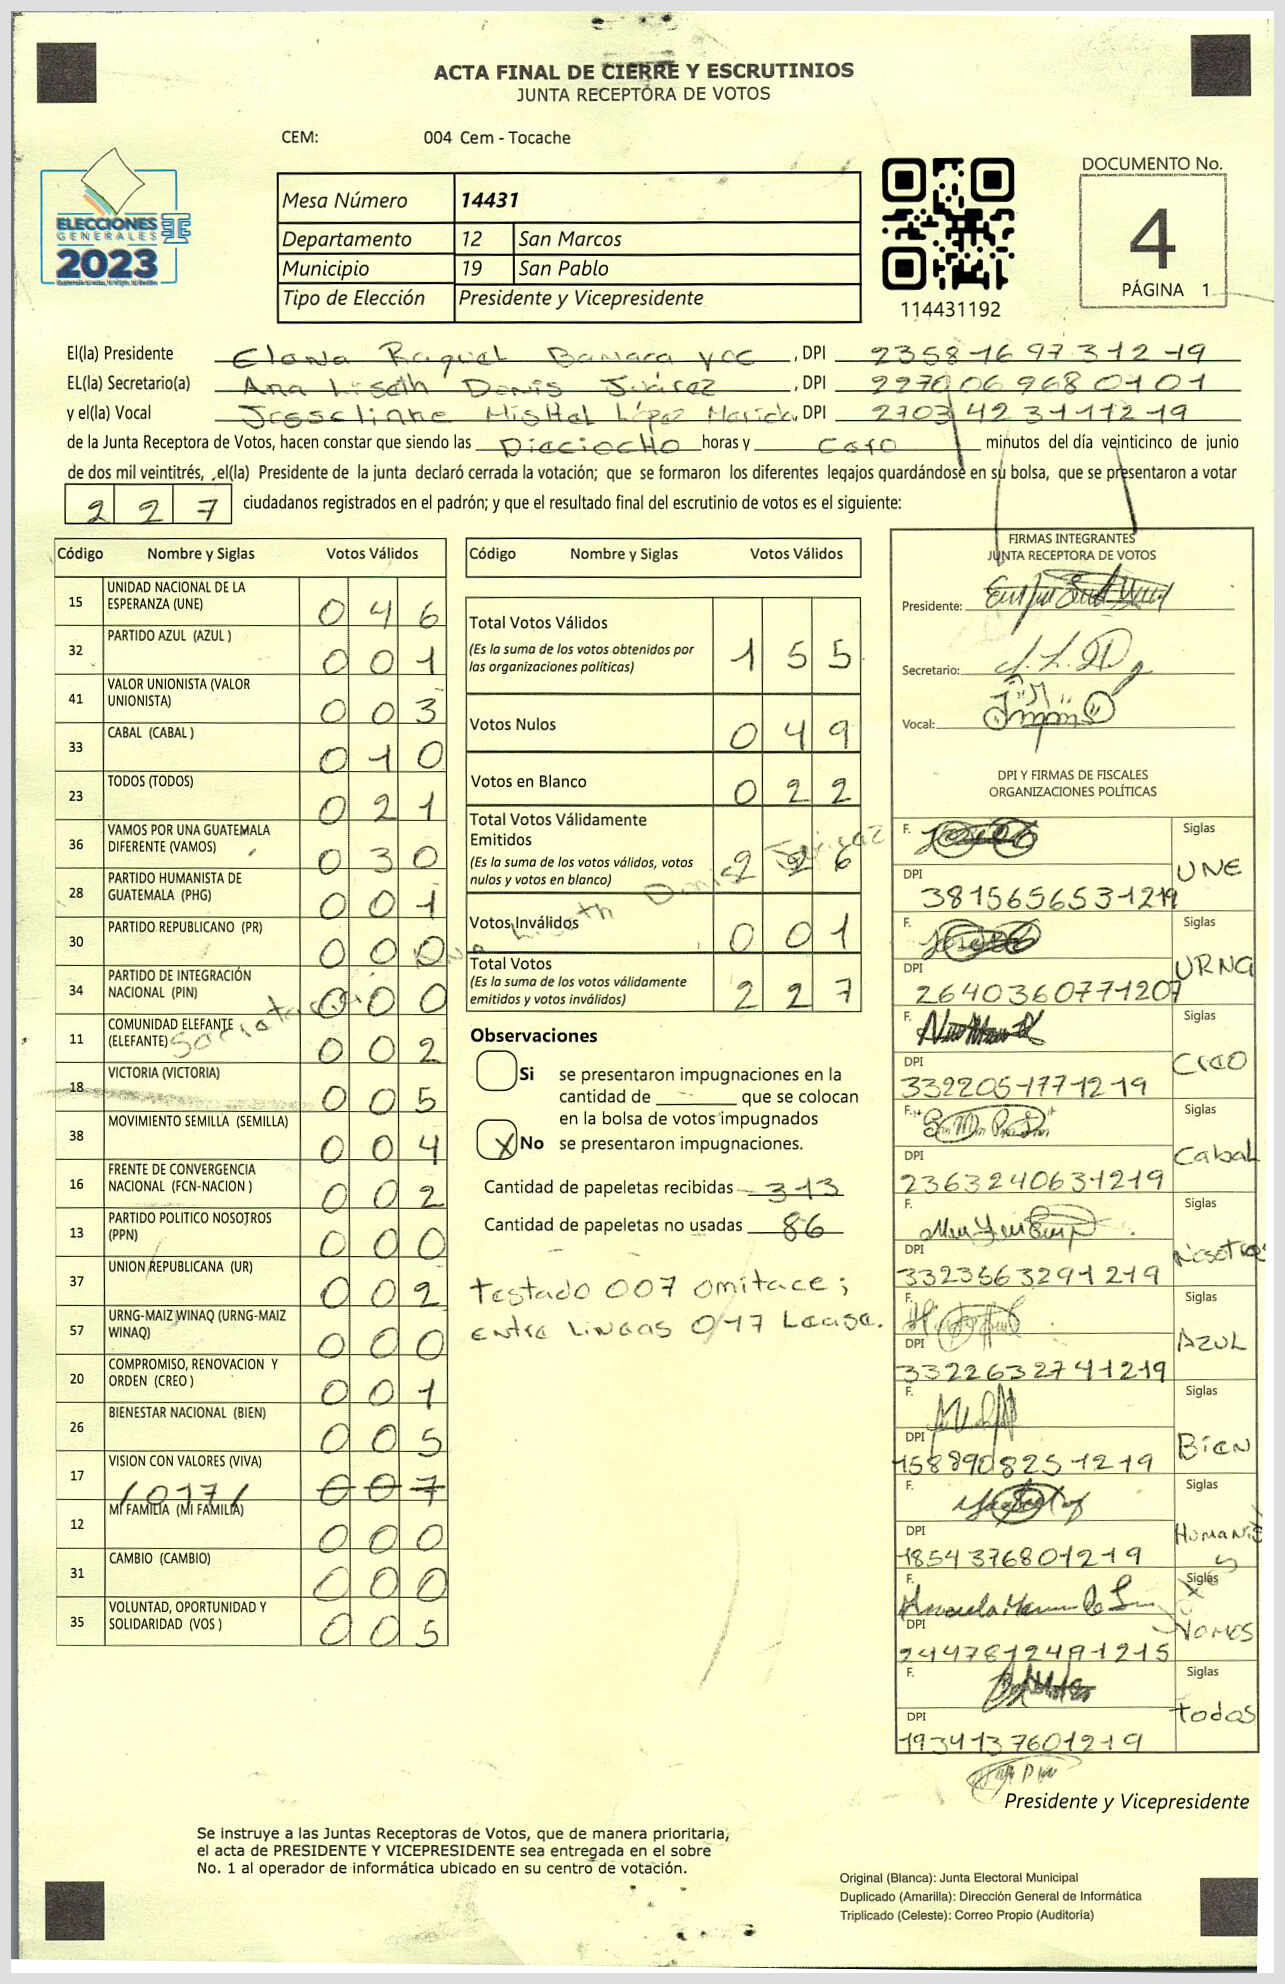 ACTA FINAL DE CIERRE Y ESCRUTINIOS
JUNTA RECEPTORA DE VOTOS
CEM: 004 Cem - Tocache
ELECCIONES
GENERALES
2023
Mesa Número 14431
Departamento 12 San Marcos
Municipio 19 San Pablo
Tipo de Elección Presidente y Vicepresidente
114431192
DOCUMENTO No.
4
PÁGINA 1
El(la) Presidente Raquel , DPI 2358169731219
EL(la) Secretario(a) Ana Liseth Denis Juárez , DPI 2270069680101
y el(la) Vocal Mishel López , DPI 2703423111219
de la Junta Receptora de Votos, hacen constar que siendo las Dieciocho horas y Cero minutos del día veinticinco de junio
de dos mil veintitrés, el(la) Presidente de la junta declaró cerrada la votación; que se formaron los diferentes legajos quardándose en su bolsa, que se presentaron a votar
227 ciudadanos registrados en el padrón; y que el resultado final del escrutinio de votos es el siguiente:
Código Nombre y Siglas Votos Válidos
15 UNIDAD NACIONAL DE LA ESPERANZA (UNE) 046
32 PARTIDO AZUL (AZUL ) 001
41 VALOR UNIONISTA (VALOR UNIONISTA) 003
33 CABAL (CABAL ) 010
23 TODOS (TODOS) 021
36 VAMOS POR UNA GUATEMALA DIFERENTE (VAMOS) 030
28 PARTIDO HUMANISTA DE GUATEMALA (PHG) 001
30 PARTIDO REPUBLICANO (PR) 000
34 PARTIDO DE INTEGRACIÓN NACIONAL (PIN) 000
11 COMUNIDAD ELEFANTE (ELEFANTE) 002
18 VICTORIA (VICTORIA) 005
38 MOVIMIENTO SEMILLA (SEMILLA) 004
16 FRENTE DE CONVERGENCIA NACIONAL (FCN-NACION ) 002
13 PARTIDO POLITICO NOSOTROS (PPN) 000
37 UNION REPUBLICANA (UR) 002
57 URNG-MAIZ WINAQ (URNG-MAIZ WINAQ) 000
20 COMPROMISO, RENOVACION Y ORDEN (CREO ) 001
26 BIENESTAR NACIONAL (BIEN) 005
17 VISION CON VALORES (VIVA) /017/ 007
12 MI FAMILIA (MI FAMILIA) 000
31 CAMBIO (CAMBIO) 000
35 VOLUNTAD, OPORTUNIDAD Y SOLIDARIDAD (VOS ) 005
Código Nombre y Siglas Votos Válidos
Total Votos Válidos 155
(Es la suma de los votos obtenidos por
las organizaciones políticas)
Votos Nulos 049
Votos en Blanco 022
Total Votos Válidamente
Emitidos 226
(Es la suma de los votos válidos, votos
nulos y votos en blanco)
Votos Inválidos 001
Total Votos 227
(Es la suma de los votos válidamente
emitidos y votos inválidos)
Ana Liseth Denis Juárez
Observaciones
Si se presentaron impugnaciones en la
cantidad de que se colocan
en la bolsa de votos impugnados
X No se presentaron impugnaciones.
Cantidad de papeletas recibidas 313
Cantidad de papeletas no usadas 86
Testado 007 omitace;
entre Lineas 017 Lease.
FIRMAS INTEGRANTES
JUNTA RECEPTORA DE VOTOS
Presidente:
Secretario:
Vocal:
DPI Y FIRMAS DE FISCALES
ORGANIZACIONES POLÍTICAS
F. Siglas UNE
DPI 3815656531219
F. Siglas URNG
DPI 2640360771207
F. Siglas CREO
DPI 3322051771219
F. Siglas Cabal
DPI 2363240631219
F. Siglas Nosotros
DPI 3323563291219
F. Siglas AZUL
DPI 3322632741219
F. Siglas Bien
DPI 1588908251219
F. Siglas Humanis
DPI 1854376801219
F. Siglas Vamos
DPI 2447812491215
F. Siglas todos
DPI 1934137601219
Presidente y Vicepresidente
Se instruye a las Juntas Receptoras de Votos, que de manera prioritaria,
el acta de PRESIDENTE Y VICEPRESIDENTE sea entregada en el sobre
No. 1 al operador de informática ubicado en su centro de votación.
Original (Blanca): Junta Electoral Municipal
Duplicado (Amarilla): Dirección General de Informática
Triplicado (Celeste): Correo Propio (Auditoría)